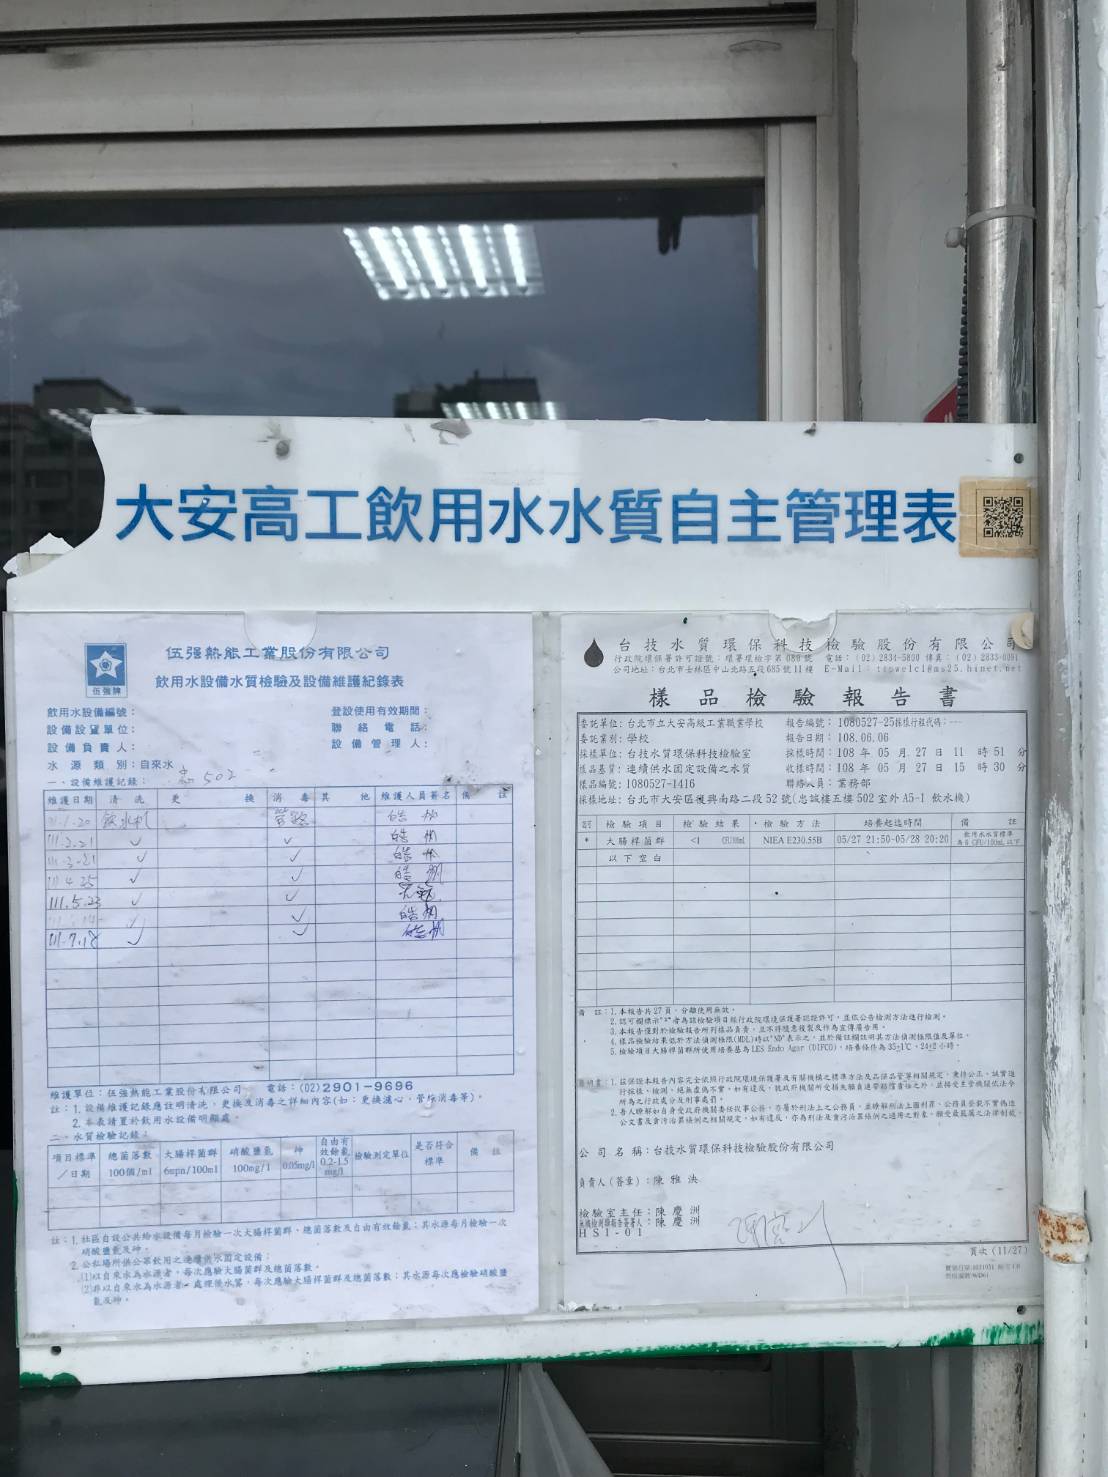 大安高工飲用水水質自主管理表
伍強牌
伍强熱能工業股份有限公司
飲用水設備水質檢驗及設備維護紀錄表
飲用水設備編號：
登設使用有效期間：
設備設置單位：
聯絡電話：
設備負責人：
設備管理人：
水源類別：自來水
一、設備維護記錄：
忠502
維護日期 清洗 更換 消毒 其他 維護人員簽名 備註
111.1.20 飲水機 管路
111.2.21 ✓ ✓
111.3.21 ✓ ✓
111.4.25 ✓ ✓
111.5.23 ✓ ✓
✓ ✓
111.7.18 ✓ ✓
維護單位：伍強熱能工業股份有限公司 電話：(02)2901-9696
註：1. 設備維護記錄應註明清洗、更換及消毒之詳細內容(如：更換濾心、管線消毒等)。
2. 本表請置於飲用水設備明顯處。
二、水質檢驗記錄：
項目標準/日期 總菌落數100個/ml 大腸桿菌群6mpn/100ml 硝酸鹽氮100mg/l 砷0.05mg/l 自由有效餘氯0.2-1.5mg/l 檢驗測定單位 是否符合標準 備註
註：1. 社區自設公共給水設備每月檢驗一次大腸桿菌群、總菌落數及自由有效餘氯；其水源每月檢驗一次
硝酸鹽氮及砷。
2. 公私場所供公眾飲用之連續供水固定設備：
(1)以自來水為水源者，每次應驗大腸桿菌群及總菌落數。
(2)非以自來水為水源者，處理後水質，每次應驗大腸桿菌群及總菌落數；其水源每次應檢驗硝酸鹽
氮及砷。
台技水質環保科技檢驗股份有限公司
行政院環保署許可證號：環署環檢字第080號 電話：(02)2834-5850 傳真：(02)2833-0391
公司地址：台北市士林區中山北路五段685號11樓
樣品檢驗報告書
委託單位：台北市立大安高級工業職業學校 報告編號：1080527-25採樣行程代碼：---
委託業別：學校 報告日期：108.06.06
採樣單位：台技水質環保科技檢驗室 採樣時間：108 年 05 月 27 日 11 時 51 分
樣品基質：連續供水固定設備之水質 收樣時間：108 年 05 月 27 日 15 時 30 分
樣品編號：1080527-1416 聯絡人員：業務部
採樣地址：台北市大安區復興南路二段52號(忠誠樓五樓502室外A5-1飲水機)
檢驗項目 檢驗結果 檢驗方法 培養起迄時間 備註
* 大腸桿菌群 <1 CFU/100mL NIEA E230.55B 05/27 21:50-05/28 20:20 飲用水水質標準為6 CFU/100mL以下
以下空白
備註：1. 本報告共27頁，分離使用無效。
2. 認可欄標示"*"者為該檢驗項目經行政院環境保護署認證許可，並依公告檢測方法進行檢測。
3. 本報告僅對於檢驗報告所列樣品負責，且不得隨意複製及作為宣傳廣告用。
4. 樣品檢驗結果低於方法偵測極限(MDL)時以"ND"表示之，並於備註欄註明其方法偵測極限值及單位。
5. 檢驗項目大腸桿菌群所使用培養基為LES Endo Agar (DIFCO)，培養條件為35±1℃、24±2小時。
聲明書：1. 茲保證本報告內容完全依照行政院環境保護署及有關機構之標準方法及品保品管等相關規定，秉持公正、誠實進
行採樣、檢測。絕無虛偽不實，如有違反，就政府機關所受損失願負連帶賠償責任之外，並接受主管機關依法令
所為之行政處分及刑事處罰。
2. 吾人瞭解如自身受政府機關委任從事公務，亦屬於刑法上之公務員，並瞭解刑法上圖利罪、公務員登載不實偽造
公文書及貪污治罪條例之相關規定，如有違反，亦為刑法及貪污治罪條例之適用之對象，願受最嚴厲之法律制裁。
公司名稱：台技水質環保科技檢驗股份有限公司
負責人(簽章)：陳雅泱
檢驗室主任：陳慶洲
無機檢測類報告簽署人：陳慶洲
HSI-01
頁次(11/27)